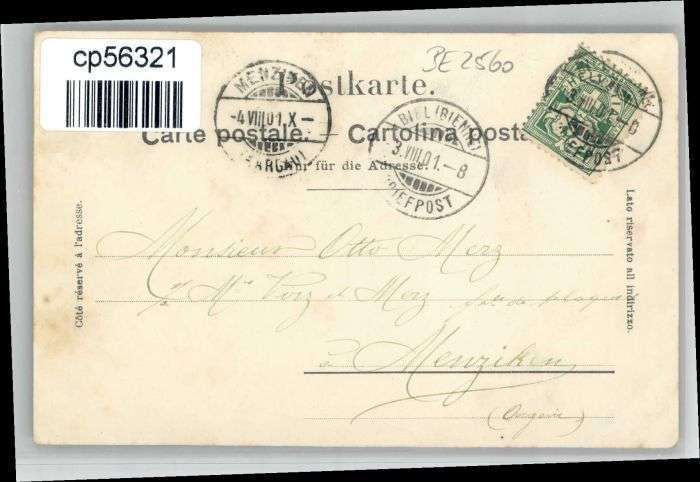 cp56321
BE 2560
Postkarte.
MENZIKEN
-4.VIII.01.X-
(AARGAU)
BIEL (BIENNE)
3.VIII.01.-8
BRIEFPOST
Carte postale. — Cartolina posta
Nur für die Adresse.
Côté réservé à l'adresse.
Lato riservato all indirizzo.
Monsieur Otto Merz
Merz
à Menziken
(Argovie)